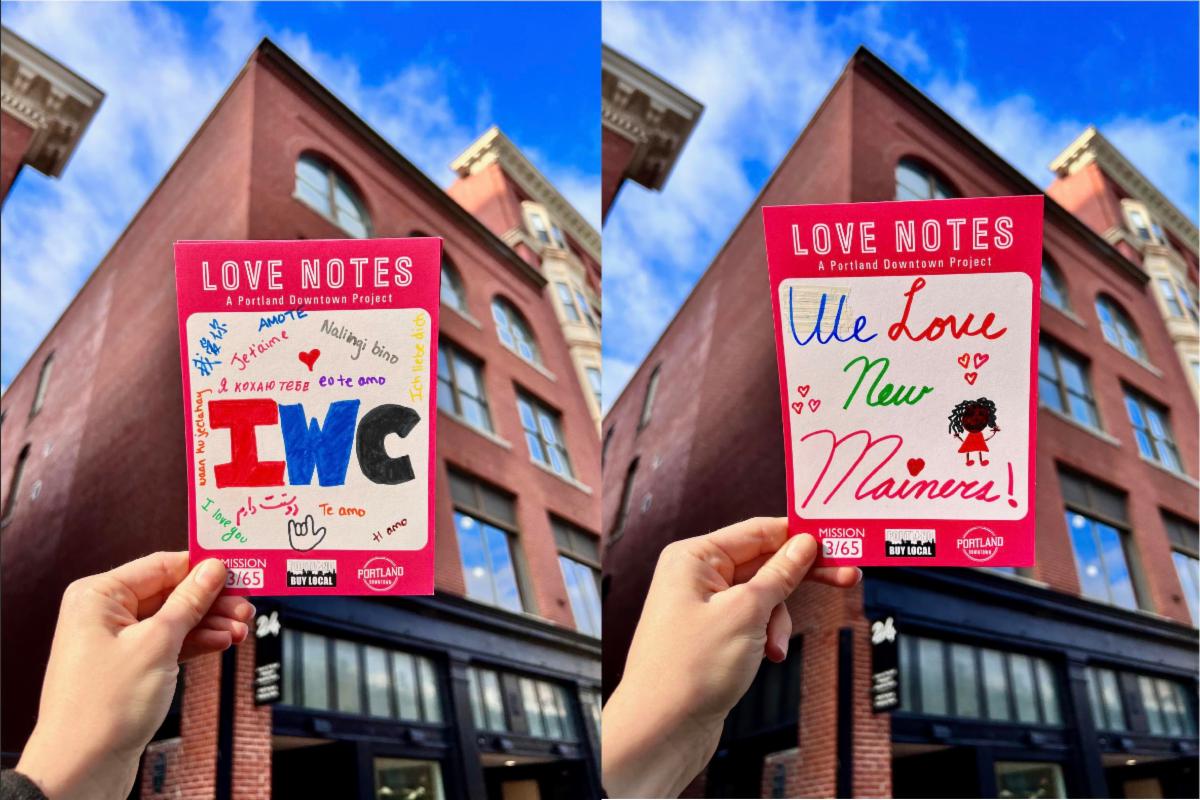 LOVE NOTES
A Portland Downtown Project
AMOTE
Je t'aime
Nalingi bino
Ich liebe dich
Я КОХАЮ ТЕБЕ
eo te amo
waan ku jeclahay
IWC
دوستت دارم
I love you
Te amo
ti amo
MISSION
3/65
BUY LOCAL
PORTLAND
DOWNTOWN
24
LOVE NOTES
A Portland Downtown Project
We Love
New
Mainers!
MISSION
3/65
PORTLAND
BUY LOCAL
PORTLAND
DOWNTOWN
24